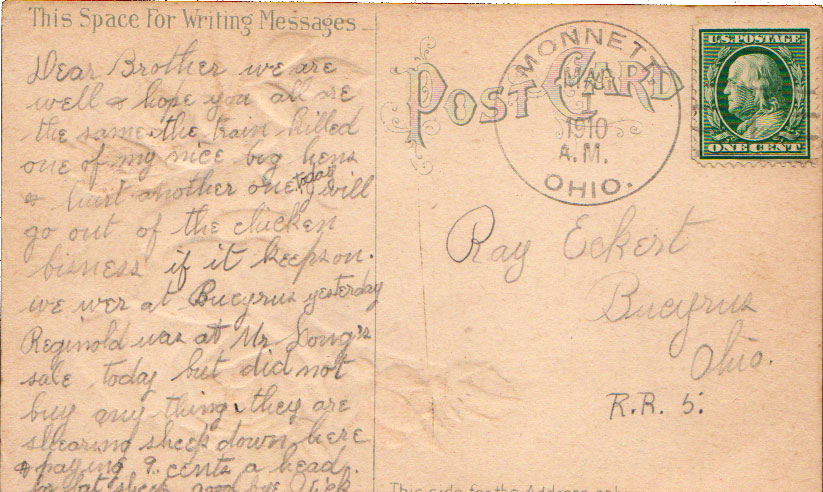 This Space For Writing Messages
Dear Brother we are
well & hope you all are
the same the train killed
one of my nice big hens
& hurt another one today I will
go out of the chicken
bisness if it keeps on.
we wer at Bucyrus yesterday
Reginold was at Mr Long's
sale today but did not
buy any thing. they are
shearing sheep down here
& paying 9 cents a head.
fat sheep good bye
POST CARD
MONNETT
MAR
1
1910
A.M.
OHIO.
U.S. POSTAGE
ONE CENT
Ray Eckert
Bucyrus
Ohio.
R.R. 5.
This side for the Address only